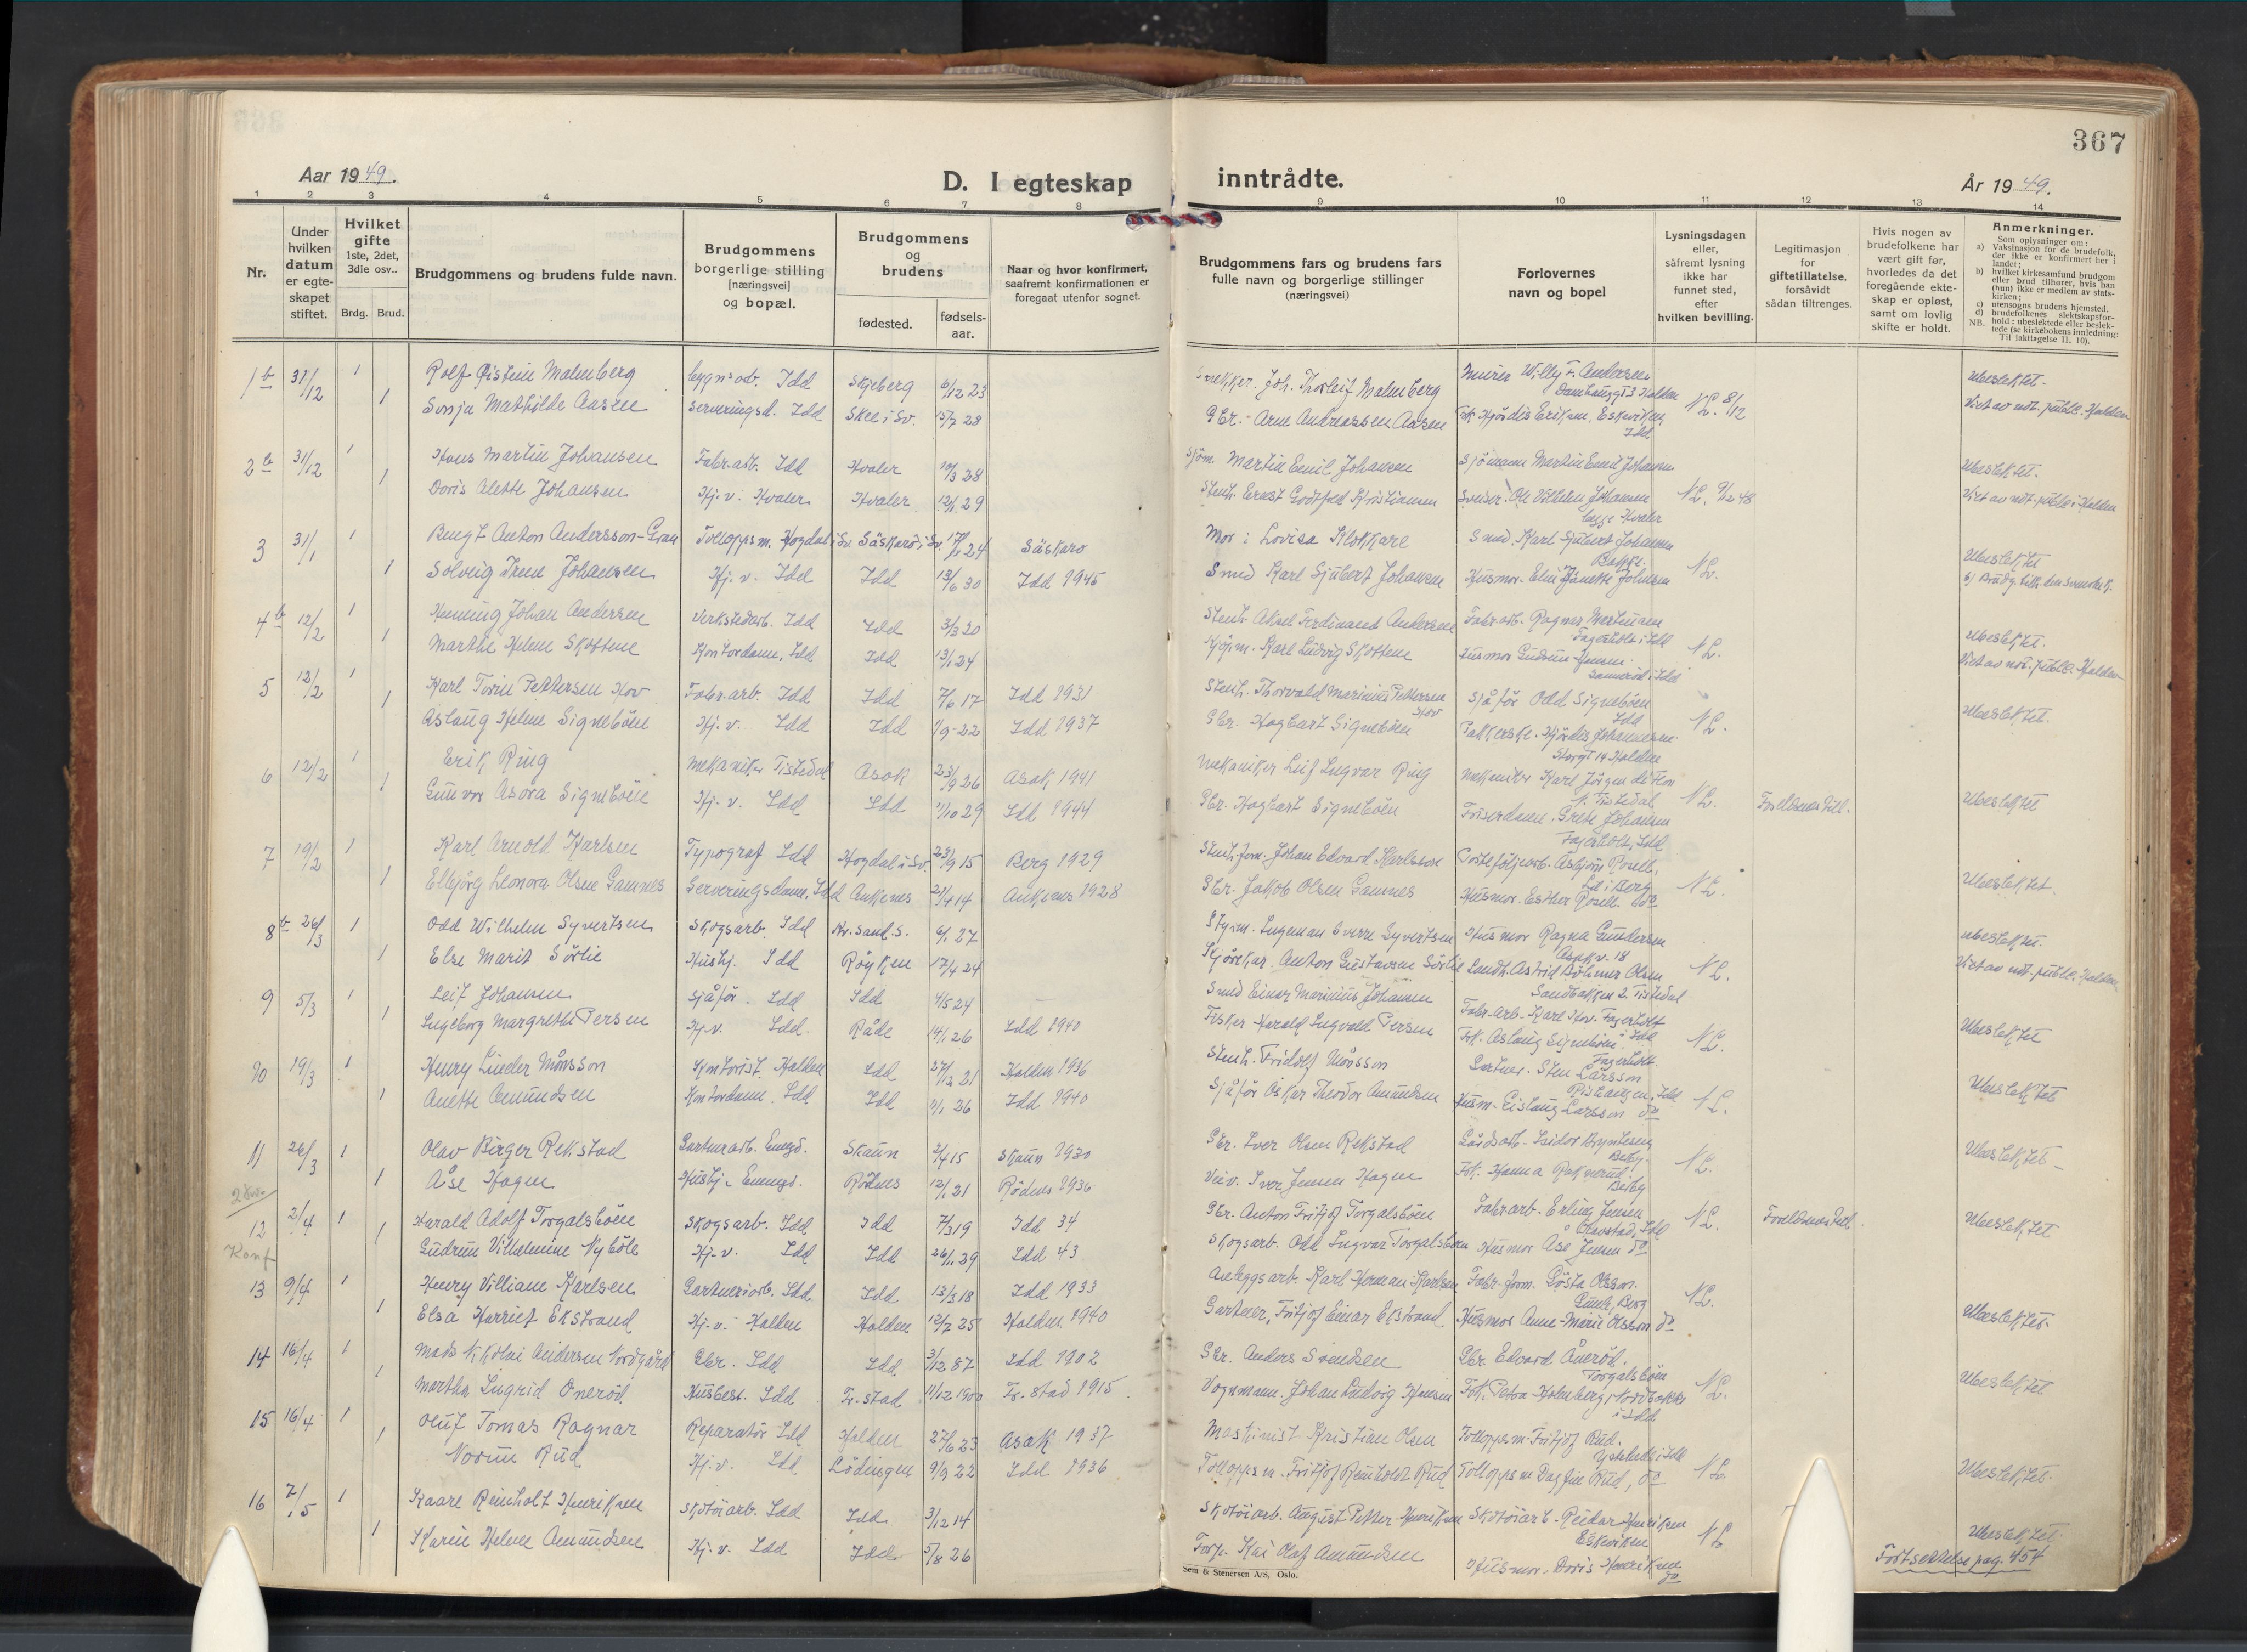 367
Aar 1949.
D. I egteskap inntrådte.
År 1949.
1 2 3 4 5 6 7 8 9 10 11 12 13 14
Nr.
Under hvilken datum er egteskapet stiftet.
Hvilket gifte 1ste, 2det, 3die osv..
Brdg. Brud.
Brudgommens og brudens fulde navn.
Brudgommens borgerlige stilling [næringsvei] og bopæl.
Brudgommens og brudens
fødested. fødselsaar.
Naar og hvor konfirmert, saafremt konfirmationen er foregaat utenfor sognet.
Brudgommens fars og brudens fars fulle navn og borgerlige stillinger (næringsvei)
Forlovernes navn og bopel
Lysningsdagen eller, såfremt lysning ikke har funnet sted, efter hvilken bevilling.
Legitimasjon for giftetillatelse, forsåvidt sådan tiltrenges.
Hvis nogen av brudefolkene har vært gift før, hvorledes da det foregående ekteskap er opløst, samt om lovlig skifte er holdt.
Anmerkninger.
Som oplysninger om:
a) Vaksinasjon for de brudefolk, der ikke er konfirmert her i landet;
b) hvilket kirkesamfund brudgom eller brud tilhører, hvis han (hun) ikke er medlem av statskirken;
c) utensogns brudens hjemsted.
d) brudefolkenes slektskapsforhold: ubeslektede eller beslektede (se kirkebokens innledning:
NB. Til iakttagelse II. 10).
1b 31/12 1 Rolf Øistein Malmberg bygn.arb. Idd Skjeberg 6/12 23 Snekker. Joh. Thorleif Malmberg Murer Willy F. Andersen Halden N L. 8/12 Ubeslektet.
1 Sonja Mathilde Aasen Serveringsd. Idd Skee i Sv. 15/7 28 Gbr. Arne Andreassen Aasen Frk. Hjørdis Eriksen, Eskeviken Idd Viet av not. publ. Halden
2b 31/12 1 Hans Martin Johansen Fabr.arb. Idd Hvaler 10/3 28 Sjøm. Martin Emil Johansen Sjømann Martin Emil Johansen N L. 9/12 48 Ubeslektet.
1 Doris Alette Johansen Hj. v. Hvaler Hvaler 12/1 29 Stenh. Ernst Godtfred Kristiansen Ole Vilhelm Johansen Hvaler Viet av not. publ. i Halden
3 31/1 1 Bengt Anton Andersson-Gran Tolloppsm. Hogdal i Sv. Säskarö i Sv. 24 Säskarö Mor: Lovisa Klokkare Smed. Karl Sjubert Johansen Bakke. N L. Ubeslektet
1 Solveig Irene Johansen Hj. v. Idd Idd 13/6 30 Idd 1945 Smed Karl Sjubert Johansen Husmor. Elin Janette Johansen b) Brudg. tilh. den svenske k.
4b 12/2 1 Henning Johan Andersen Verkstedarb. Idd Idd 3/3 20 Stenh. Aksel Ferdinand Andersen Fabr.arb. Ragnar Martinsen Fagerholt i Idd N L. Ubeslektet.
1 Marthe Helene Skottene Kontordame, Idd Idd 13/1 24 Karl Ludvig Skottene Husmor Gudrun Hansen i Idd Viet av not. publ. Halden
5 12/2 1 Karl Torin Pettersen Hov Fabr.arb. Idd Idd 7/6 17 Idd 1931 Stenh. Thorvald Marinius Pettersen Hov Sjåfør Odd Signebøen Idd N L. Ubeslektet.
1 Aslaug Helene Signebøen Hj. v. Idd Idd 1/9-22 Idd 1937 Gbr. Hagbart Signebøen Pakkerske. Hjørdis Johannesen Storgt 14 Halden
6 12/2 1 Erik Ring Mekaniker Tistedal Asak 23/9 26 Asak 1941 Mekaniker Leif Ingvar Ring Mekaniker Karl Jørgen de Flon Tistedal N L. Foreldrenes till. Ubeslektet
1 Gunvor Asora Signebøen Hj. v. Idd Idd 1/10 29 Idd 1944 Gbr. Hagbart Signebøen Friserdame. Grete Johansen Fagerholt, Idd
7 19/2 1 Karl Arnold Karlsen Typograf Idd Hogdal i Sv. 23/9 15 Berg 1929 Stenh. form. Johan Edvard Karlsson Porteføljearb. Asbjørn Rosell. Id i Berg N L. Ubeslektet.
1 Elbjørg Leonora Olsen Gamnes Serveringsdame, Idd Ankenes 21/4 14 Ankenes 1928 Gbr. Jakob Olsen Gamnes Husmor. Esther Rosell. do
8b 26/3 1 Odd Wilhelm Syvertsen Skogsarb. Idd Kr.sand. S. 6/1 27 Styrm. Ingeman Sverre Syvertsen Husmor Ragna Gundersen Asak v. 18 N L. Ubeslektet.
1 Else Marit Sørlie Hushj. Idd Røyken 17/4 24 Kjørekar. Anton Gustavsen Sørlie Astrid Bøhmer Olsen Sandbakken 2 Tistedal Viet av not. publ. Halden
9 5/3 1 Leif Johansen Sjåfør. Idd Idd 4/5 24 Smed Einar Marinius Johansen Fabr.arb. Karl Hov. Fagerholt i Idd N L. Ubeslektet
1 Ingeborg Margrethe Persen Hj. v. Idd. Råde 14/1 26 Idd 1940 Fisker Harald Ingvald Persen Frk. Aslaug Signebøen. Fagerholt.
10 19/3 1 Henry Linder Månsson Kontorist. Halden Idd 27/12 21 Halden 1936 Stenh. Fridolf Månsson Gartner. Sten Larsson Rishaugen, Idd N L. Ubeslektet
1 Anette Amundsen Kontordame. Idd Idd 11/1 26 Idd 1940 Sjåfør Oskar Theodor Amundsen Husm. Eislaug Larsson do
11 26/3 1 Olav Birger Rekstad Gartnerarb. Enngd. Skaun 2/4 15 Skaun 1930 Gbr. Iver Olsen Rekstad Gårdsarb. Isidor Bryntesen Berby. N L. Ubeslektet
1 Åse Hagen Hushj. Enningd. Rødenes 12/1 21 Rødenes 1936 Veiv. Iver Jensen Hagen Frk. Hanna Raknerud. Berby
12 2/4 1 Harald Adolf Torgalsbøen Skogsarb. Idd Idd 7/3 19 Idd 34 Gbr. Anton Fritjof Torgalsbøen Fabr.arb. Erling Jensen Idd N L. Foreldrenes till. Ubeslektet
Konf 1 Gudrun Vilhelmine Nybøle Hj. v. Idd Idd 26/11 29 Idd 43 Skogsarb. Odd Ingvar Torgalsbøen Husmor Åse Jensen do
13 9/4 1 Henry Villiam Karlsen Gartneriarb. Idd Idd 13/3 18 Idd 1933 Anleggsarb. Karl Herman Karlsen Fabr. form. Gösta Olsson. Berg N L. Ubeslektet.
1 Elsa Harriet Ekstrand Hj. v. Halden Halden 12/7 25 Halden 1940 Gartner, Fritjof Einar Ekstrand Husmor Anne-Marie Olsson do
14 16/4 1 Mads Nikolai Andersen Nordgård Gbr. Idd Idd 3/12 87 Idd 1902 Gbr. Anders Svendsen Gbr. Edvard Ånerød. Torgalsbøen N L. Ubeslektet
1 Martha Ingrid Ånerød Husbest. Idd Fr.stad 11/12 1900 Fr.stad 1915. Vognmann. Johan Ludvig Hansen Frk. Petra Holmberg, Nordbakke i Idd
15 16/4 1 Oluf Tomas Ragnar Reparatør Idd Halden 27/6 23 Asak 1937 Maskinist Kristian Olsen Tolloppsm. Fritjof Rud. i Idd N L. Ubeslektet.
1 Norun Rud Hj. v. Idd Lødingen 9/9 22 Idd 1936 Tolloppsm. Fritjof Reinholdt Rud Tolloppsm Dagfin Rud, do
16 7/5 1 Kaare Reinholt Henriksen Skotøiarb. Idd Idd 3/12 14 Skotøiarb. August Petter Henriksen Skotøiarb. Reidar Henriksen Eskeviken N L Ubeslektet.
1 Karin Helene Amundsen Hj. v. Idd Idd 5/8 26 Kai Olaf Amundsen Husmor. Doris Henriksen do
Fortsettelse pag. 454
Sem & Stenersen A/S, Oslo.